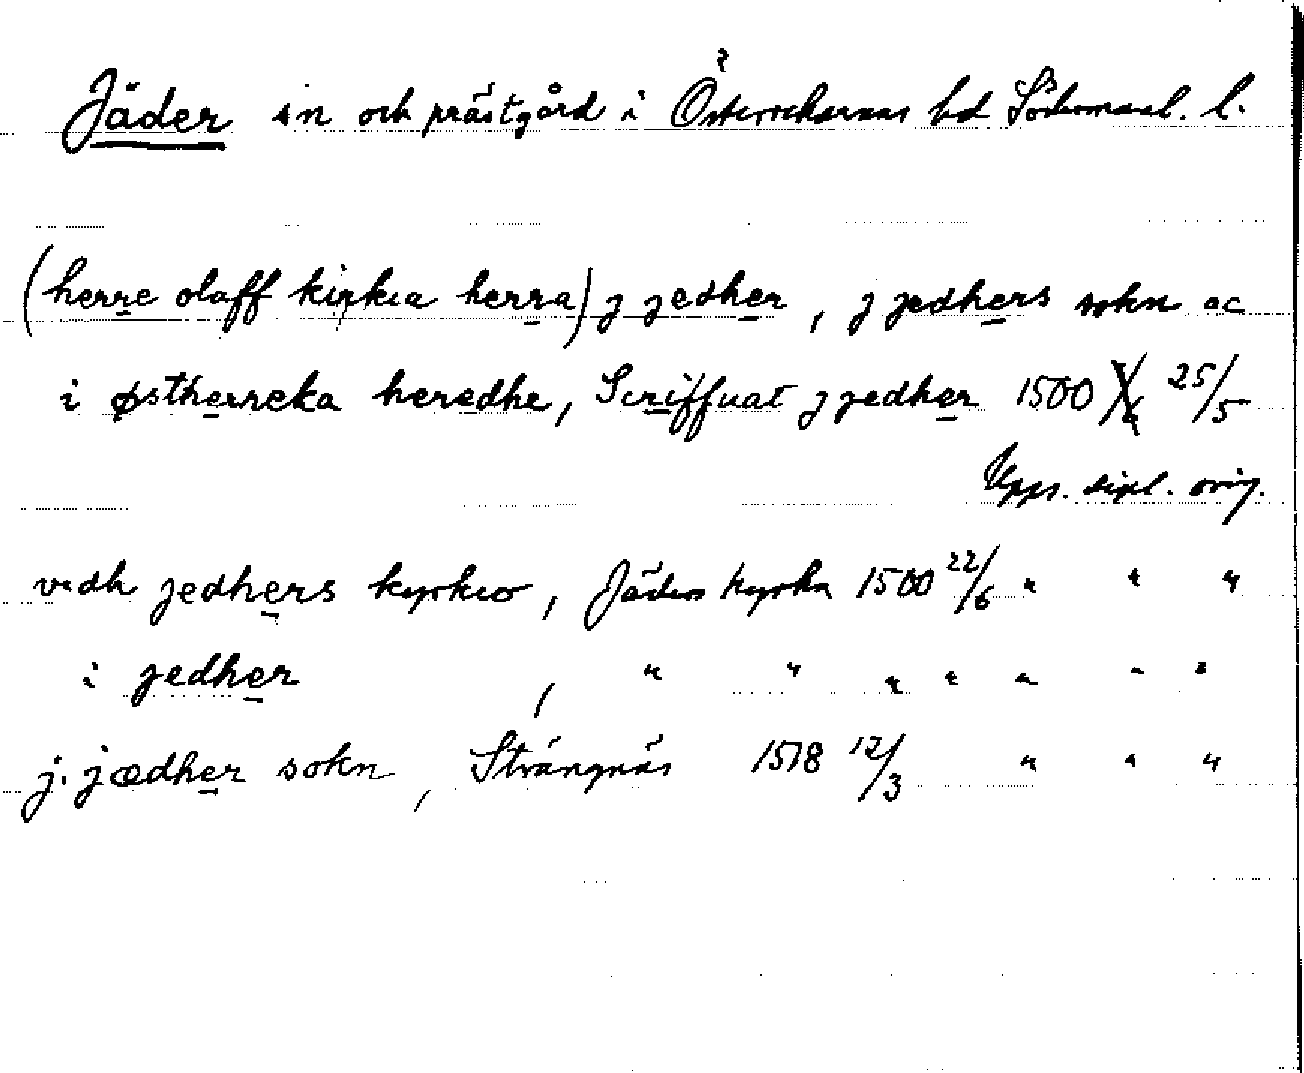 Jäder sn och prästgård i Österrekarnes hd Södermanl. l.
(herre olaff kirkia herra) j jedher, j jedhers sokn oc
i østherreka heredhe, Scriffuat j jedher 1500 25/5
Upps. dipl. orig.
vedh jedhers kyrkio, Jäders kyrka 1500 22/6 " " "
i jedher , " " " " " " "
j. jædher sokn, Strängnäs 1518 12/3 " " "